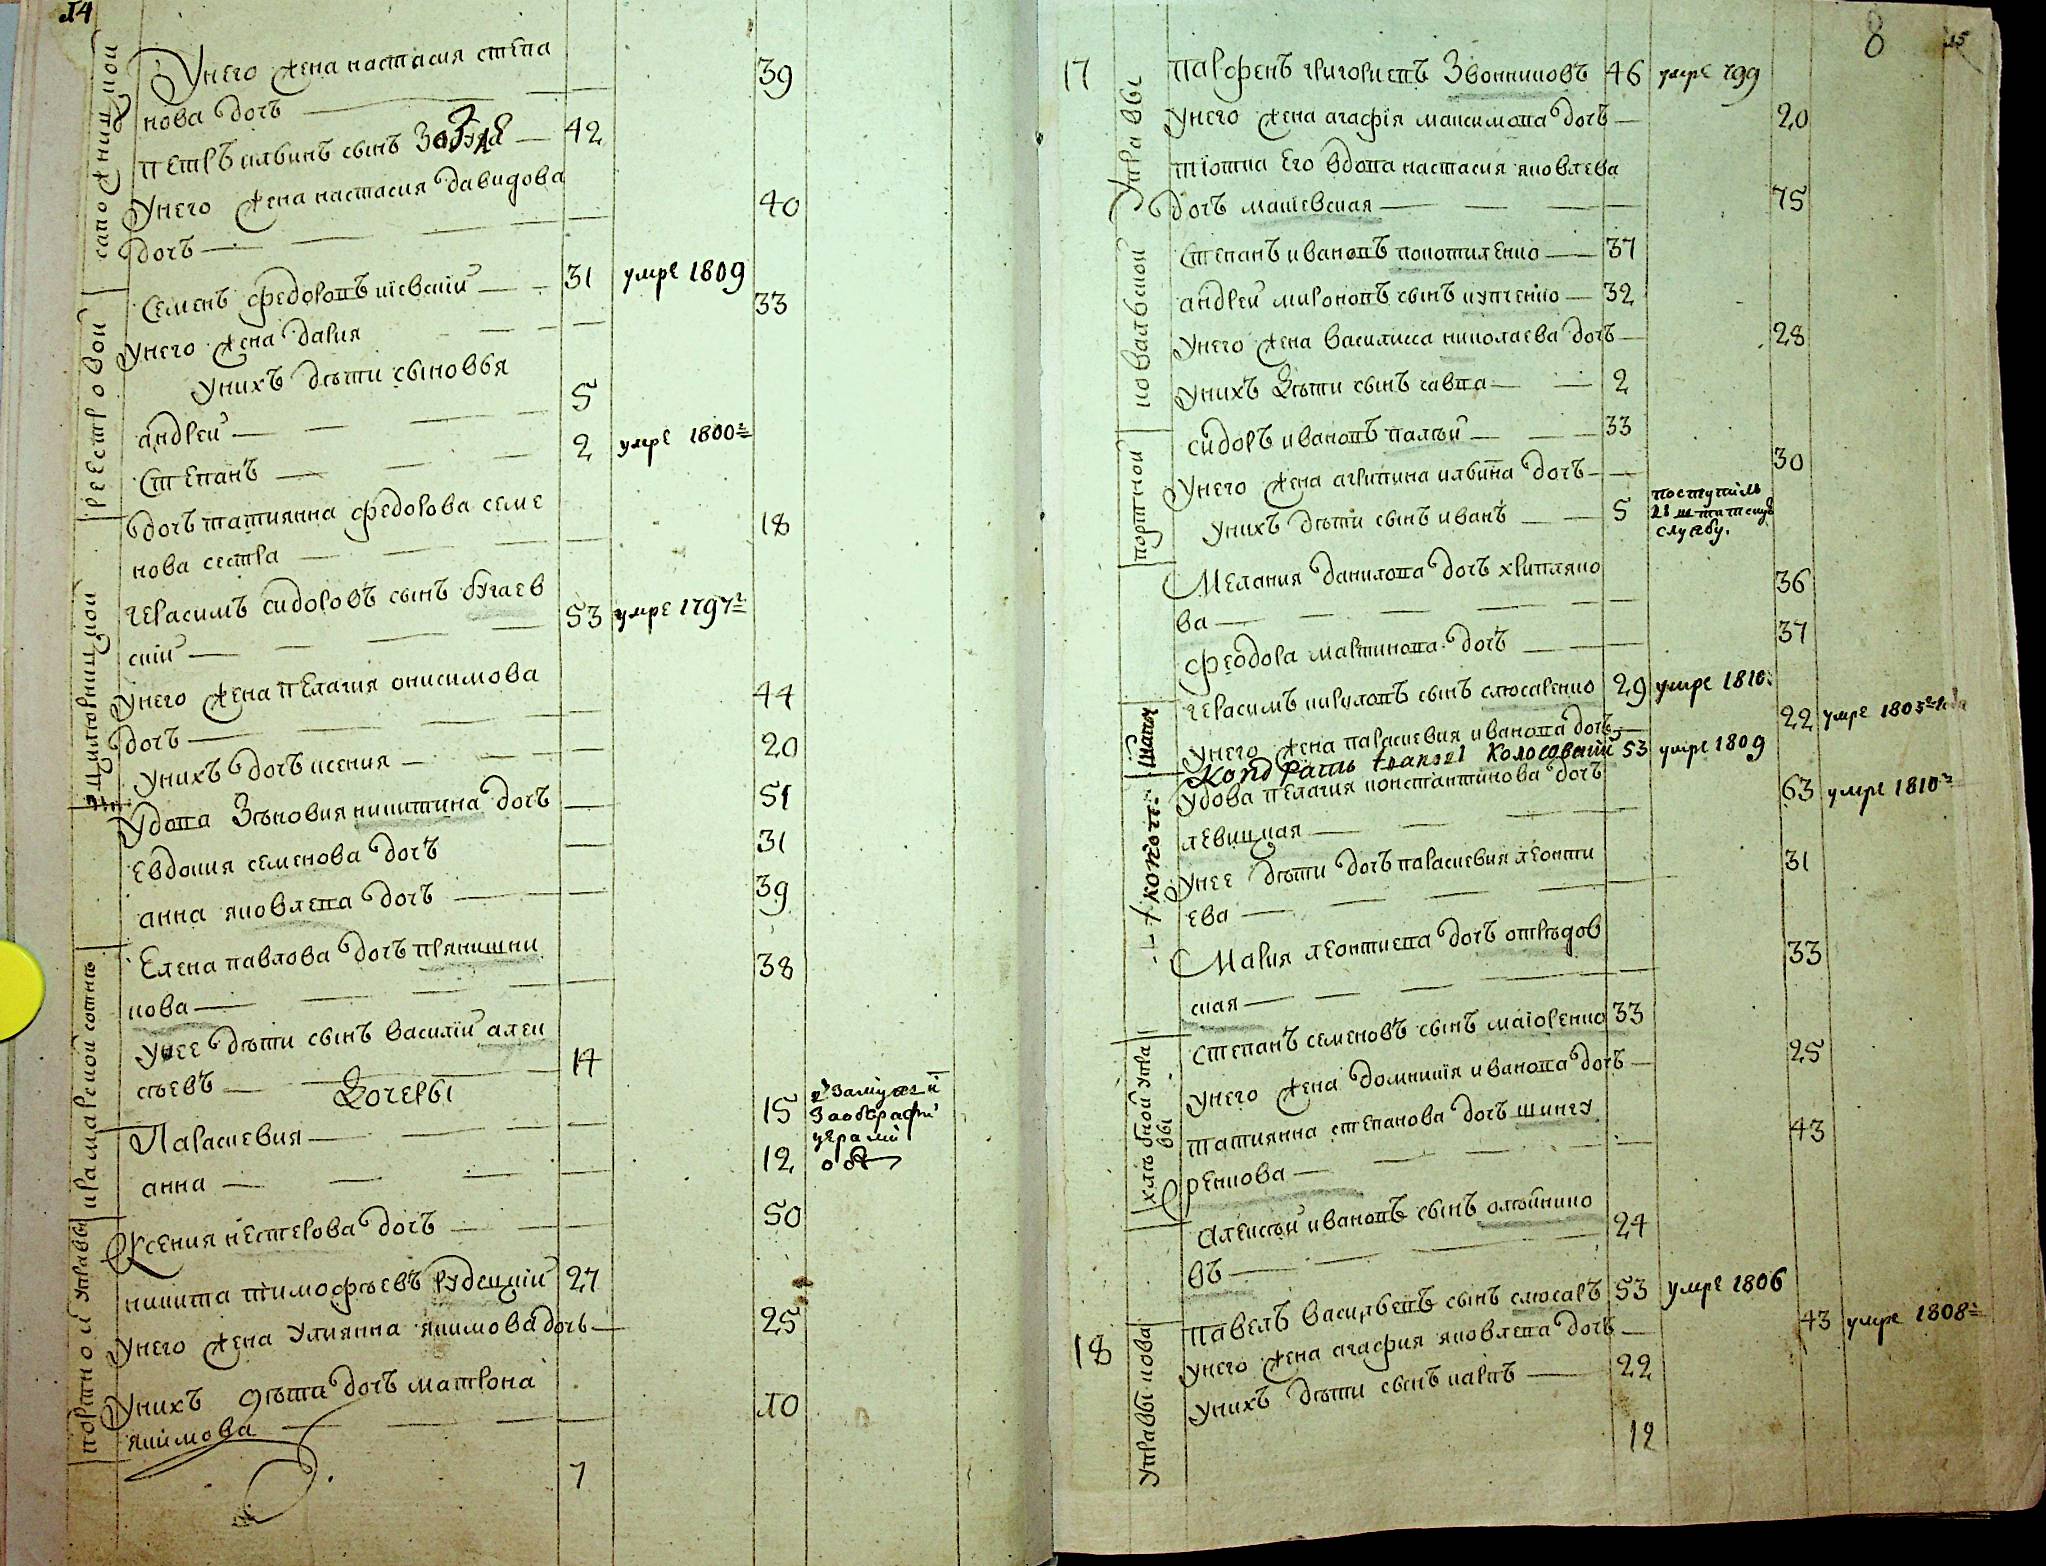 14
сапожницкой
Унего жена настасия степа
нова дочъ 39
петръ илвинъ сынъ 42
Унего жена настасия давидова
дочъ 40
реестровои
Семенъ федоровъ кіевский 31 умре 1809
Унего жена дария 33
Унихъ дѣти сыновья
андреи 5
Степанъ 2 умре 1800
дочъ татиянна федорова семе
нова сестра 18
герасимъ сидоровъ сынъ бугаев
ский 53 умре 1797
Унего жена пелагия онисимова
дочъ 44
Унихъ дочъ ксения 20
Удова Зѣновия никитина дочъ 51
евдокия семенова дочъ 31
анна яковлева дочъ 39
крамарской сотнѣ
Елена павлова дочъ прянишни
кова 38
Унее дѣти сынъ василій алек
сѣевъ 14
Дочеры
Параскевия 15
анна 12
Ксения нестерова дочъ 50
портной управы
никита тимофѣевъ рудецкій 27
Унего жена Улиянна якимова дочъ 25
Унихъ дѣти дочъ матрона
якимова 10
7
8
15
17
управы
ковальской
парфенъ григориевъ Звонниковъ 46 умре 799
Унего жена агафія максимова дочъ 20
тіотка Его вдова настасия яковлева
дочъ макіевская 75
Степанъ ивановъ покотиленко 37
андреи мироновъ сынъ купченко 32
Унего жена василисса николаева дочъ 28
Унихъ дѣти сынъ савка 2
портной
сидоръ ивановъ палѣй 33
Унего жена агрипина илвина дочъ 30
Унихъ дѣти сынъ иванъ 5 поступилъ
въ штатскую
службу.
Мелания данилова дочъ хрипляко
ва 36
феодора мартинова дочъ 37
шапки
герасимъ кириловъ сынъ слюсаренко 29 умре 1810
Унего жена параскевия иванова дочъ 22 умре 1805 года
Кондратъ Колосовский 53 умре 1809
Удова пелагия константинова дочъ
левицкая 63 умре 1810
Унее дѣти дочъ параскевия леонти
ева 31
Мария леонтиева дочъ отрѣдов
ская 33
хлѣбной упра
вы
Степанъ семеновъ сынъ маіоренко 33
Унего жена домникія иванова дочъ 25
татиянна степанова дочъ шинка
ренкова 43
Алексѣй ивановъ сынъ олѣйнико
въ 24
18
управы кова
павелъ василѣевъ сынъ слюсаръ 53 умре 1806
Унего жена агафия яковлева дочъ 43 умре 1808
Унихъ дѣти сынъ карпъ 22
12